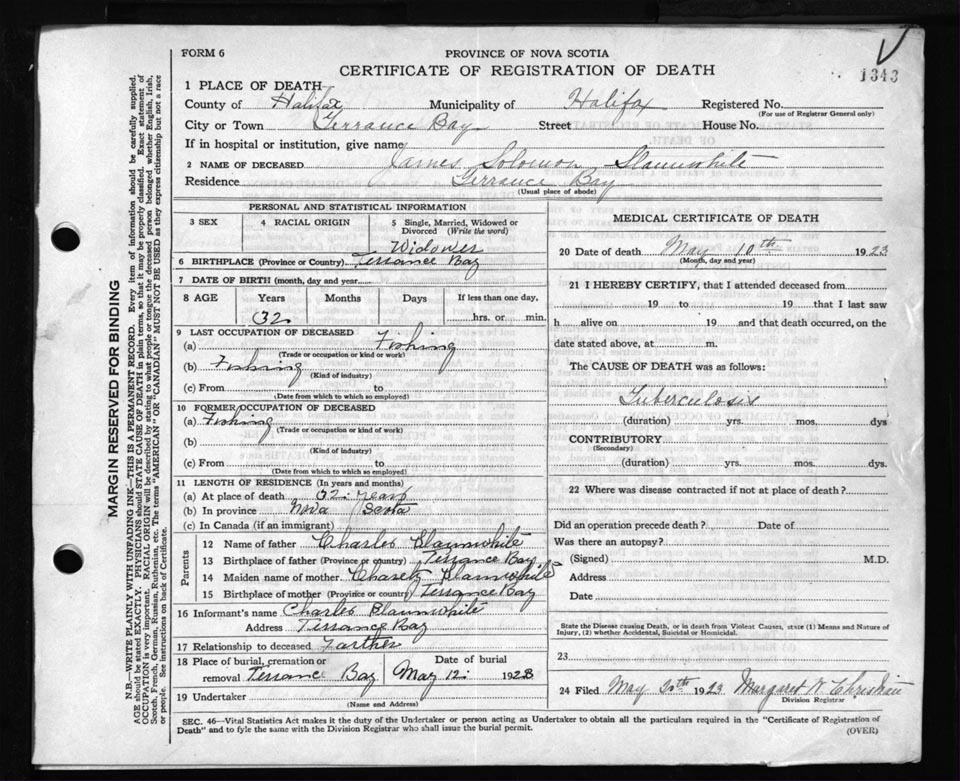 FORM 6
PROVINCE OF NOVA SCOTIA
CERTIFICATE OF REGISTRATION OF DEATH
1343
1 PLACE OF DEATH
County of Halifax Municipality of Halifax Registered No.
(For use of Registrar General only)
City or Town Terrance Bay Street House No.
If in hospital or institution, give name
2 NAME OF DECEASED James Solomon Slaunwhite
Residence Terrance Bay
(Usual place of abode)
PERSONAL AND STATISTICAL INFORMATION
3 SEX 4 RACIAL ORIGIN 5 Single, Married, Widowed or Divorced (Write the word)
Widower
6 BIRTHPLACE (Province or Country) Terrance Bay
7 DATE OF BIRTH (month, day and year)
8 AGE Years Months Days If less than one day,
32 hrs. or min.
9 LAST OCCUPATION OF DECEASED
(a) Fishing
(Trade or occupation or kind or work)
(b) Fishing
(Kind of industry)
(c) From to
(Date from which to which so employed)
10 FORMER OCCUPATION OF DECEASED
(a) Fishing
(Trade or occupation or kind of work)
(b)
(Kind of industry)
(c) From to
(Date from which to which so employed)
11 LENGTH OF RESIDENCE (In years and months)
(a) At place of death 32 years
(b) In province Nova Scotia
(c) In Canada (if an immigrant)
Parents
12 Name of father Charles Slaunwhite
13 Birthplace of father (Province or country) Terrance Bay
14 Maiden name of mother Slaunwhite
15 Birthplace of mother (Province or country) Terrance Bay
16 Informant's name Charles Slaunwhite
Address Terrance Bay
17 Relationship to deceased Farther
18 Place of burial, cremation or removal Terrance Bay Date of burial May 12 1923
19 Undertaker
(Name and Address)
MEDICAL CERTIFICATE OF DEATH
20 Date of death May 10th 1923
(Month, day and year)
21 I HEREBY CERTIFY, that I attended deceased from
19 to 19 that I last saw
h alive on 19 and that death occurred, on the
date stated above, at m.
The CAUSE OF DEATH was as follows:
Tuberculosis
(duration) yrs. mos. dys
CONTRIBUTORY
(Secondary)
(duration) yrs. mos. dys.
22 Where was disease contracted if not at place of death?
Did an operation precede death? Date of
Was there an autopsy?
(Signed) M.D.
Address
Date
State the Disease causing Death, or in death from Violent Causes, state (1) Means and Nature of
Injury, (2) whether Accidental, Suicidal or Homicidal.
23
24 Filed May 1923 Margaret Christian
Division Registrar
SEC. 46—Vital Statistics Act makes it the duty of the Undertaker or person acting as Undertaker to obtain all the particulars required in the "Certificate of Registration of
Death" and to fyle the same with the Division Registrar who shall issue the burial permit.
(OVER)
MARGIN RESERVED FOR BINDING
N.B.—WRITE PLAINLY WITH UNFADING INK—THIS IS A PERMANENT RECORD. Every item of information should be carefully supplied.
AGE should be stated EXACTLY. PHYSICIANS should STATE CAUSE OF DEATH in plain terms, so that it may be properly classified. Exact statement of
OCCUPATION is very important. RACIAL ORIGIN will be described by stating to what people or tongue the deceased person belonged whether English, Irish,
Scotch, French, German, Russian, Ruthenian, etc. The terms "AMERICAN" OR "CANADIAN" MUST NOT BE USED as they express citizenship but not a race
or people. See instructions on back of Certificate.